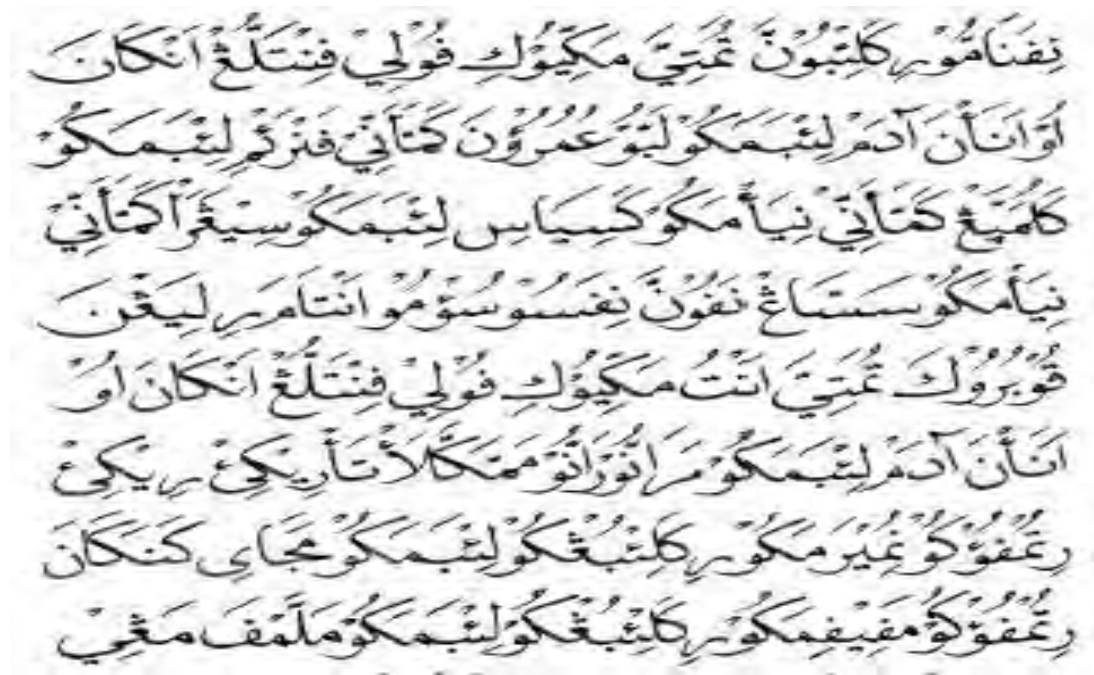 نِفَنَامُّوْرِ كَلِئْبُوْنَّ تُمَتِيَّ مَكِّيُوْكِ فُوْلِيْ فِنْتَلُّڠْ اَنْكَانَ
اُوْ اَنَأْنَ آدَمْ لِئْبَمَكُوْ لَبُّوْ عُمُرُوْنَ كَمَتَأَنِّيْ فَنْرَكَمْ لِئْبَمَكُوْ
كَلُمَنِّڠْ كَمَتَأَنِّيْ نِيَأْ مَكُوْ كَسِيَاسِ لِئْبَمَكُوْ سِيْڠَرَأْ كَمَتَأَنِّيْ
نِيَأْمَكُوْ سَسَّاڠْ نَفُوْنَّ نِفَسُوْسُوْمُوْ اَنْتَامَرِ لِيَڠْنَ
قُوْبُرُوْكَ تُمَتِيَّ اَنْتُ مَكِّيُوْكِ فُوْلِيْ فِنْتَلُّڠْ اَنْكَانَ اُوْ
اَنَأْنَ آدَمْ لِئْبَمَكُوْ مَرَانُّوْرَانُّوْ مَمَّكَّلَأْتَأْ رِيْكِئْ رِيْكِئْ
رِعُفُوْكُوْ نُمِيْرَ مَكُوْرِ كَلِئْبُڠْكُوْ لِئْبَمَكُوْ مَجَّاىِ كَنَكَانَ
رِعُفُوْكُوْ مَفِيْفِمَكُوْرِ كَلِئْبُڠْكُوْ لِئْبَمَكُوْ مَلَّمَفَ مَڠِيْ